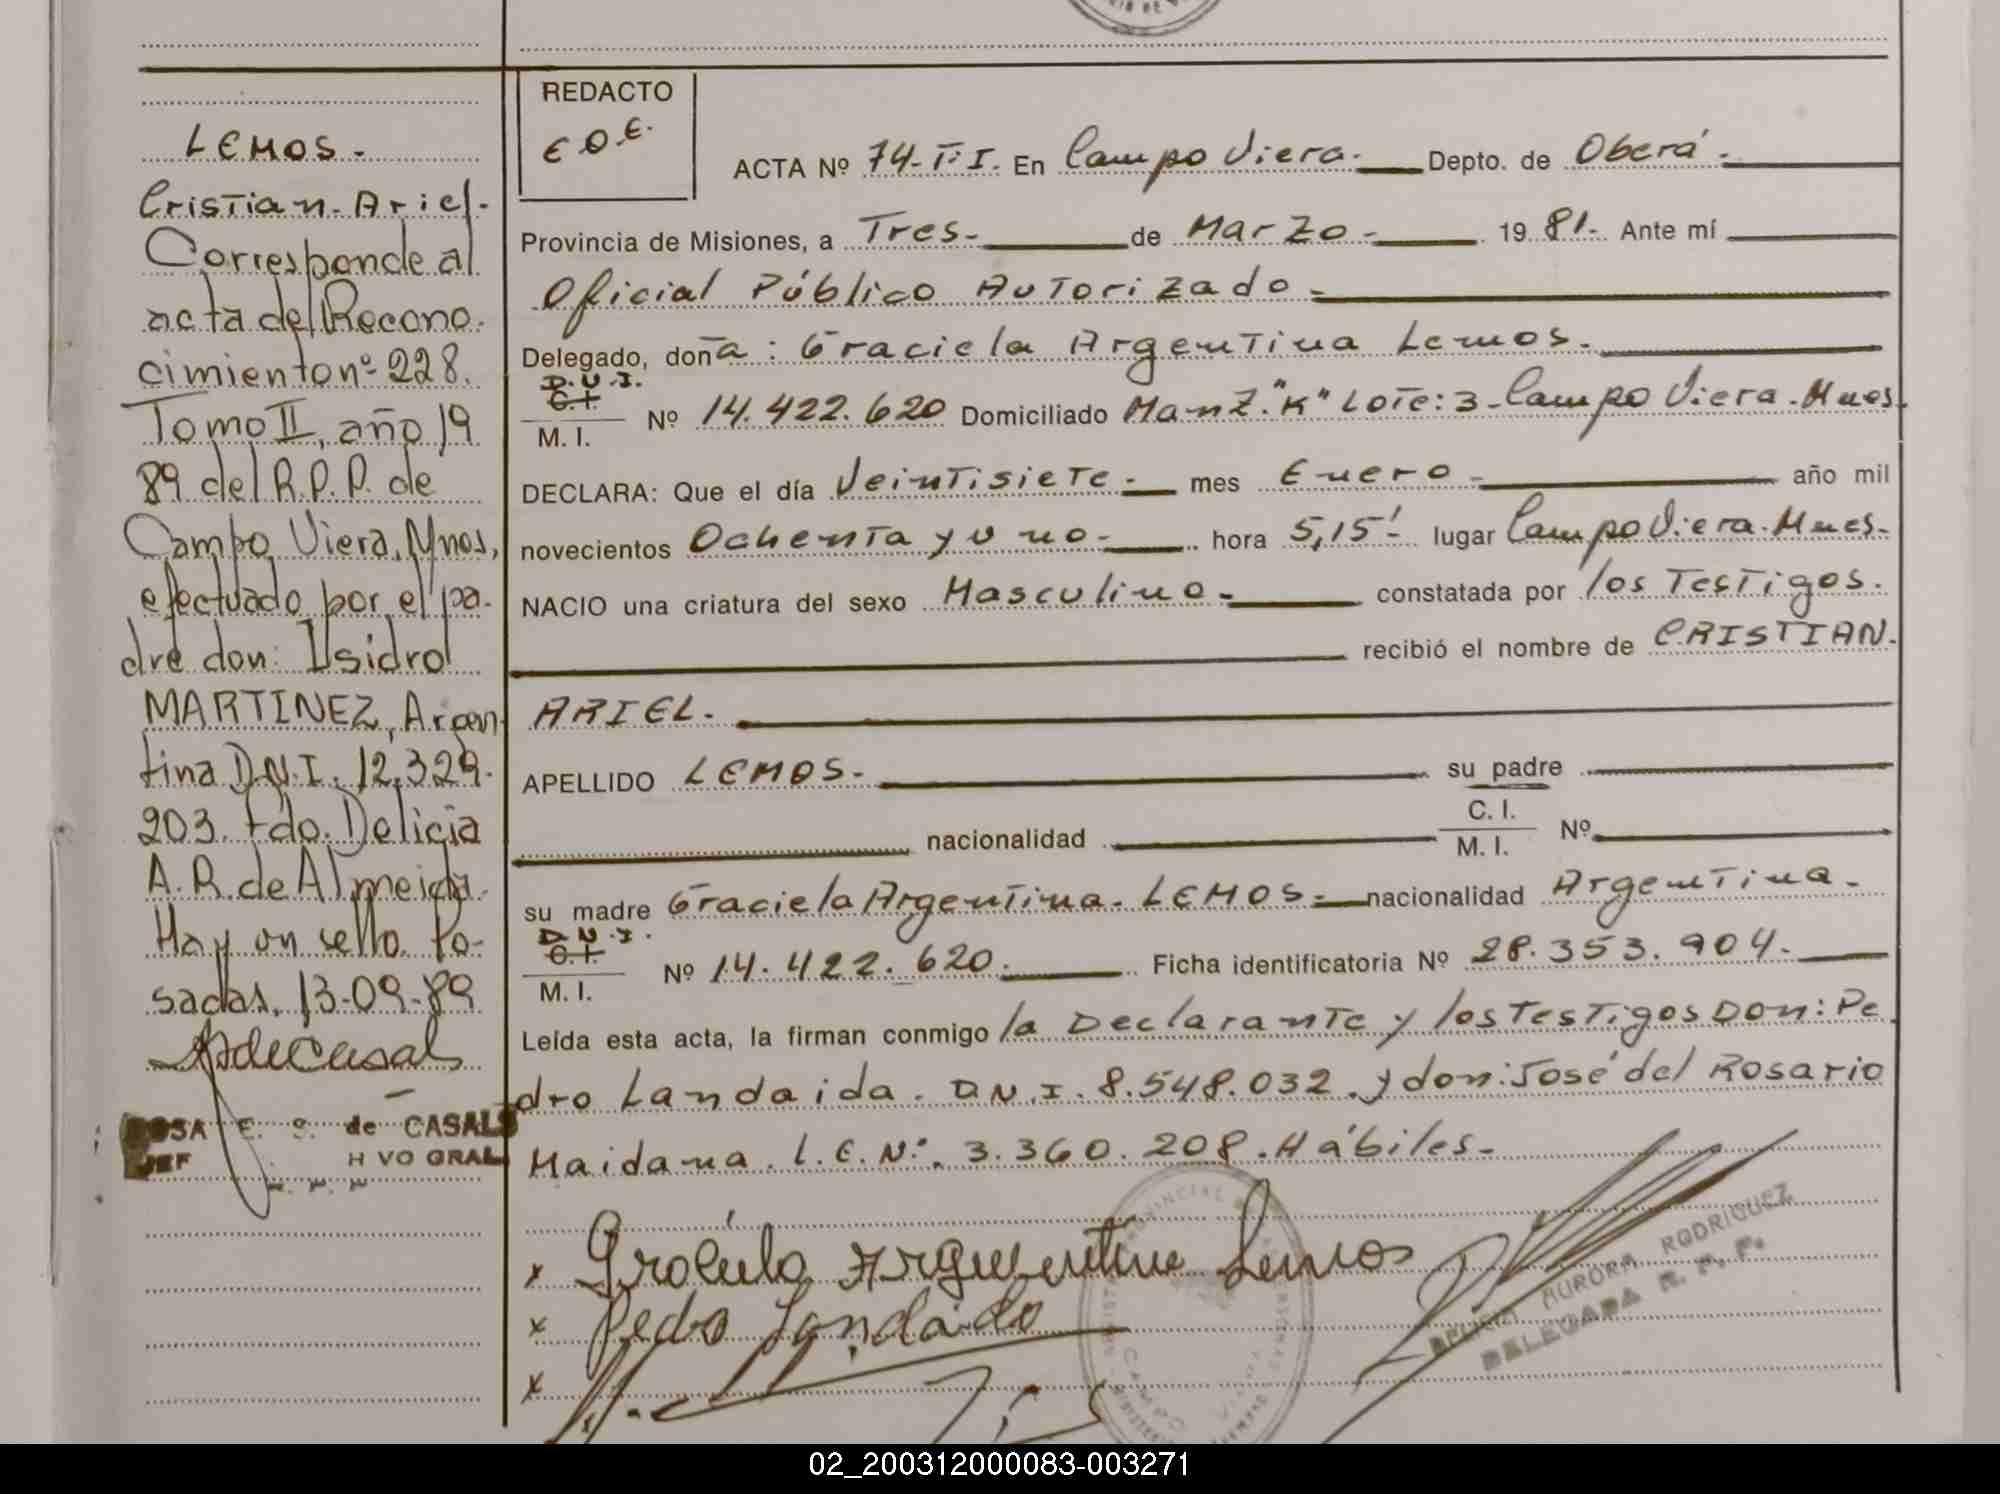 LEMOS.-
Cristian. Ariel.-
Corresponde al
acta de Recono.
cimiento nº 228.
Tomo II, año 19
89 del R.P.P. de
Campo Viera, Mnes,
efectuado por el pa-
dre don: Isidro
MARTINEZ, Argen-
tina D.N.I. 12.329.
203. Fdo. Delicia
A.R. de Almeida.
Hay un sello. Po-
sadas, 13-09-89
ROSA E. S. de CASALS
JEF H VO GRAL
REDACTO
E.O.E.
ACTA Nº 74-T.I. En Campo Viera.- Depto. de Oberá.-
Provincia de Misiones, a Tres.- de Marzo.- 19 81.- Ante mí
Oficial Público Autorizado.-
Delegado, don a : Graciela Argentina Lemos.-
D.N.I.
C.I.
M. I. Nº 14.422.620 Domiciliado Manz. "K" Lote: 3-Campo Viera.-Mnes.
DECLARA: Que el día Veintisiete.- mes Enero.- año mil
novecientos Ochenta y uno.- hora 5,15'- lugar Campo Viera.Mnes.-
NACIO una criatura del sexo Masculino.- constatada por los Testigos.
recibió el nombre de CRISTIAN.
ARIEL.-
APELLIDO LEMOS.- su padre
nacionalidad C. I.
M. I. Nº
su madre Graciela Argentina. LEMOS.- nacionalidad Argentina.-
D.N.I.
C.I.
M. I. Nº 14.422.620.- Ficha identificatoria Nº 28.353.904.-
Leída esta acta, la firman conmigo la Declarante y los Testigos Don: Pe
dro Landaida. D.N.I. 8.548.032. y don: José del Rosario
Maidana. L.E.Nº. 3.360.208. Hábiles.-
x Graciela Argentina Lemos
x Pedro Landaido
x
DELICIA AURORA RODRIGUEZ
DELEGADA R. P. P.
02_200312000083-003271